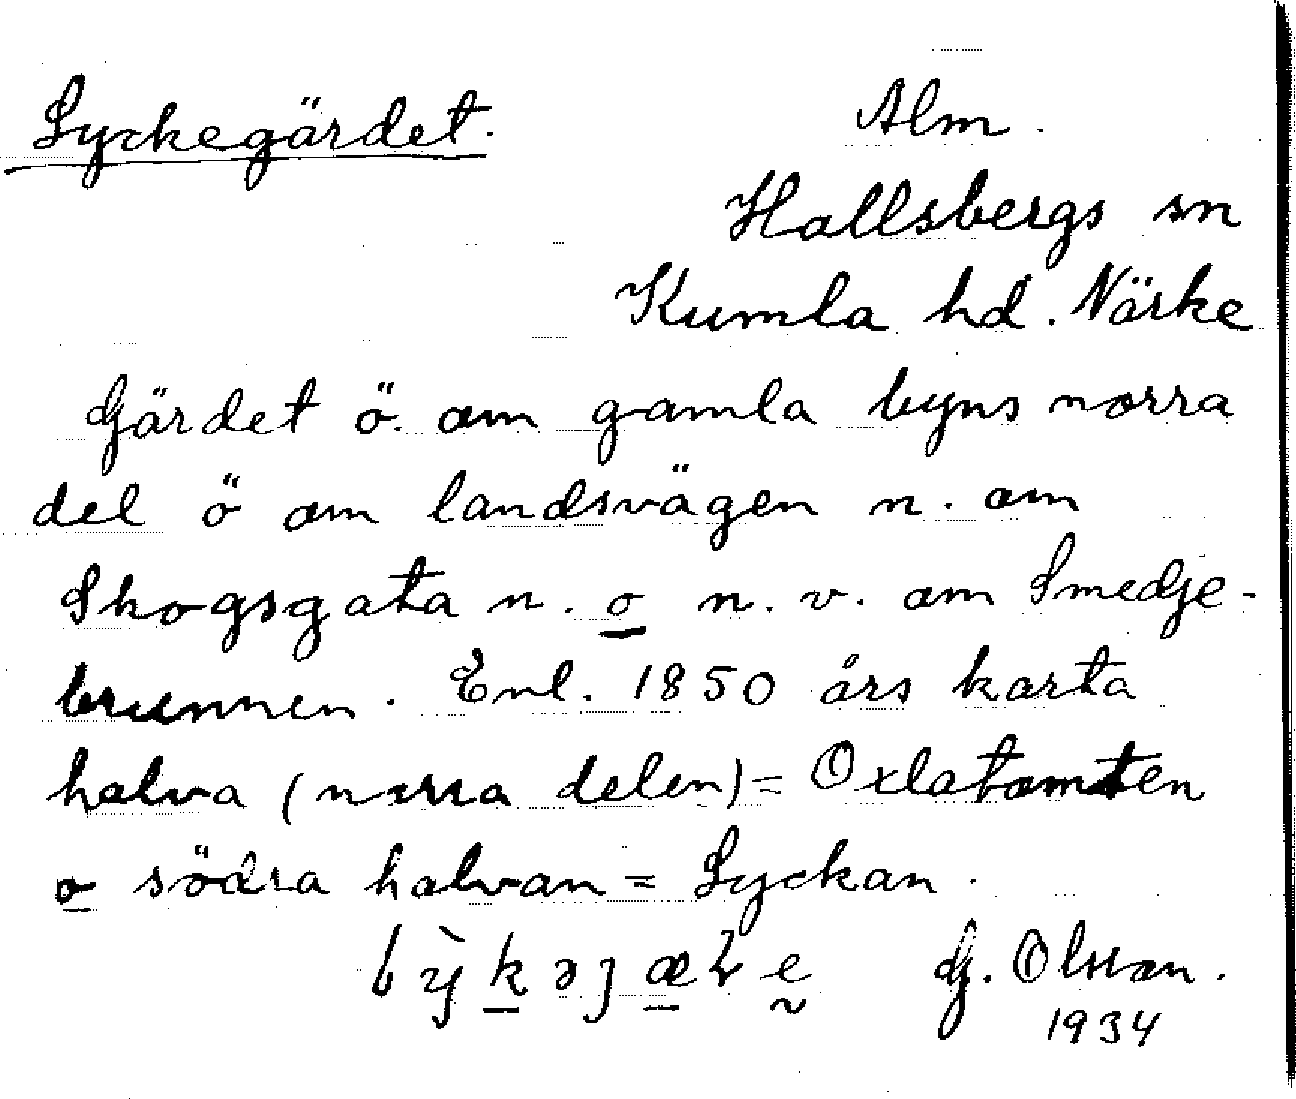 Lyckegärdet.
Alm.
Hallsbergs sn
Kumla hd. Närke
Gärdet ö. om gamla byns norra
del ö om landsvägen n. om
Skogsgata n. o n. v. om Smedje-
brunnen. Enl. 1850 års karta
halva (norra delen) = Oxlatomten
o södra halvan = Lyckan.
G. Olsson.
1934